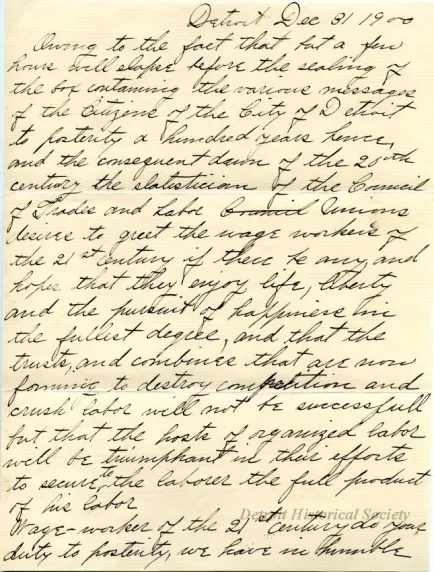 Detroit Dec 31 1900
Owing to the fact that but a few
hours will elapse before the sealing of
the box containing the various messages
of the Citizens of the City of Detroit
to posterity a hundred years hence,
and the consequent dawn of the 20th
century the statistician of the Council
of Trades and Labor Council Unions
desires to greet the wage workers of
the 21st century if there be any, and
hopes that they enjoy life, liberty
and the pursuit of happiness in
the fullest degree, and that the
trusts, and combines that are now
forming to destroy competition and
crush labor will not be successfull
but that the hosts of organized labor
will be triumphant in their efforts
to secure to the laborer the full product
of his labor
Detroit Historical Society
Wage-worker of the 21st Century do your
duty to posterity, we have in humble